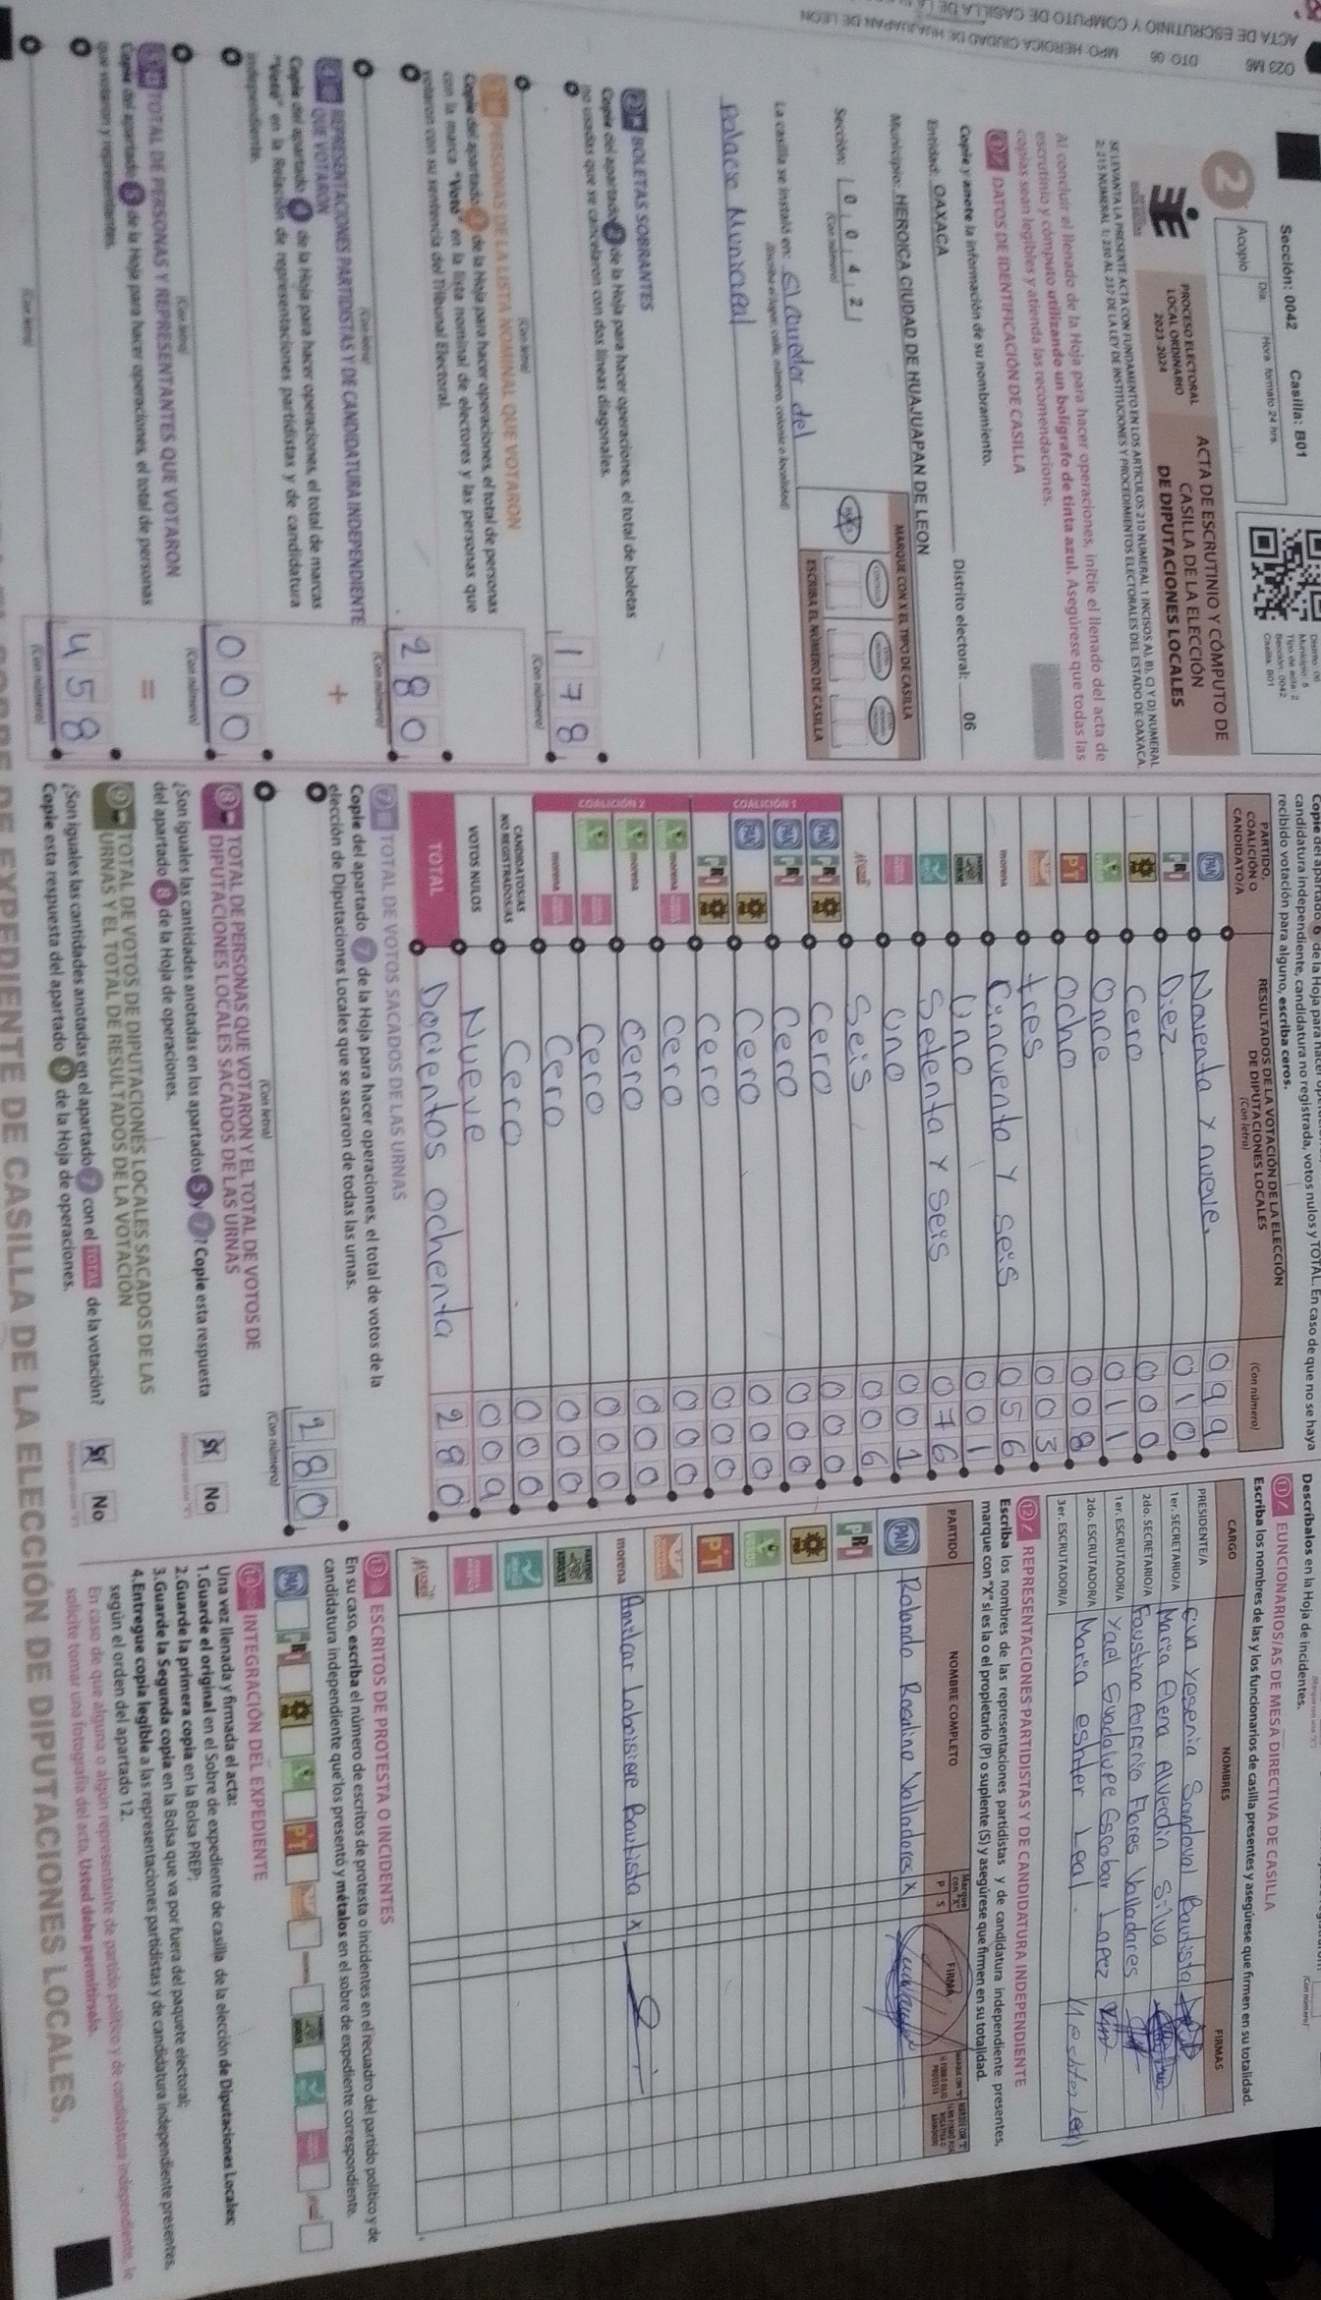 023 M6
ACTA DE ESCRUTINIO Y CÓMPUTO DE CASILLA DE LA
DTO 06
MPO. HEROICA CIUDAD DE HUAJUAPAN DE LEON
Sección: 0042 Casilla: B01
Día: Hora formato 24 hrs.
Acopio
2
Distrito: 06
Municipio: 5
Tipo de acta: 2
Sección: 0042
Casilla: B01
PROCESO ELECTORAL
LOCAL ORDINARIO
2023-2024
ACTA DE ESCRUTINIO Y CÓMPUTO DE
CASILLA DE LA ELECCIÓN
DE DIPUTACIONES LOCALES
SE LEVANTA LA PRESENTE ACTA CON FUNDAMENTO EN LOS ARTÍCULOS 210 NUMERAL 1 INCISOS A), B), C) Y D) NUMERAL
2; 215 NUMERAL 1; 230 AL 237 DE LA LEY DE INSTITUCIONES Y PROCEDIMIENTOS ELECTORALES DEL ESTADO DE OAXACA.
Al concluir el llenado de la Hoja para hacer operaciones, inicie el llenado del acta de
escrutinio y cómputo utilizando un bolígrafo de tinta azul. Asegúrese que todas las
copias sean legibles y atienda las recomendaciones.
1 DATOS DE IDENTIFICACIÓN DE CASILLA
Copie y anote la información de su nombramiento.
Entidad: OAXACA Distrito electoral: 06
Municipio: HEROICA CIUDAD DE HUAJUAPAN DE LEON
Sección: 0 0 4 2
(Con número)
MARQUE CON X EL TIPO DE CASILLA
ESCRIBA EL NÚMERO DE CASILLA
La casilla se instaló en:
(Escriba el lugar: calle, número, colonia o localidad)
Palacio Municipal
2 BOLETAS SOBRANTES
Copie del apartado 2 de la Hoja para hacer operaciones, el total de boletas
no usadas que se cancelaron con dos líneas diagonales.
178
(Con letra) (Con número)
3 PERSONAS DE LA LISTA NOMINAL QUE VOTARON
Copie del apartado 3 de la Hoja para hacer operaciones, el total de personas
con la marca "Votó" en la lista nominal de electores y las personas que
votaron con su sentencia del Tribunal Electoral.
280
(Con letra) (Con número)
4 REPRESENTACIONES PARTIDISTAS Y DE CANDIDATURA INDEPENDIENTE
QUE VOTARON
+
Copie del apartado 4 de la Hoja para hacer operaciones, el total de marcas
"Votó" en la Relación de representaciones partidistas y de candidatura
independiente.
000
(Con letra) (Con número)
5 TOTAL DE PERSONAS Y REPRESENTANTES QUE VOTARON
=
Copie del apartado 5 de la Hoja para hacer operaciones, el total de personas
que votaron y representantes.
458
(Con letra) (Con número)
Copie del apartado 6 de la Hoja para hacer
candidatura independiente, candidatura no registrada, votos nulos y TOTAL. En caso de que no se haya
recibido votación para alguno, escriba ceros.
PARTIDO,
COALICIÓN O
CANDIDATO/A
RESULTADOS DE LA VOTACIÓN DE LA ELECCIÓN
DE DIPUTACIONES LOCALES
(Con letra)
(Con número)
PAN Noventa y nueve. 099
PRI Diez 010
PRD Cero 000
VERDE Once 011
PT Ocho 008
tres 003
morena Cincuenta y seis 056
Uno 001
Setenta y seis 076
Uno 001
Seis 006
COALICIÓN 1
PAN PRI PRD Cero 000
PAN PRI Cero 000
PAN PRD Cero 000
PRI PRD Cero 000
COALICIÓN 2
morena Cero 000
morena Cero 000
Cero 000
morena Cero 000
CANDIDATOS/AS
NO REGISTRADOS/AS Cero 000
VOTOS NULOS Nueve 009
TOTAL Docientos ochenta 280
7 TOTAL DE VOTOS SACADOS DE LAS URNAS
Copie del apartado 7 de la Hoja para hacer operaciones, el total de votos de la
elección de Diputaciones Locales que se sacaron de todas las urnas.
280
(Con letra) (Con número)
8 TOTAL DE PERSONAS QUE VOTARON Y EL TOTAL DE VOTOS DE
DIPUTACIONES LOCALES SACADOS DE LAS URNAS
¿Son iguales las cantidades anotadas en los apartados 5 y 7? Copie esta respuesta
del apartado 8 de la Hoja de operaciones.
Sí No
9 TOTAL DE VOTOS DE DIPUTACIONES LOCALES SACADOS DE LAS
URNAS Y EL TOTAL DE RESULTADOS DE LA VOTACIÓN
¿Son iguales las cantidades anotadas en el apartado 7 con el TOTAL de la votación?
Copie esta respuesta del apartado 9 de la Hoja de operaciones.
Sí No
Descríbalos en la Hoja de incidentes.
11 FUNCIONARIOS/AS DE MESA DIRECTIVA DE CASILLA
Escriba los nombres de las y los funcionarios de casilla presentes y asegúrese que firmen en su totalidad.
CARGO NOMBRES FIRMAS
PRESIDENTE/A Yesenia Sandoval Bautista
1er. SECRETARIO/A Maria Elena Alverdin Silva
2do. SECRETARIO/A Faustino Porfirio Flores Valladares
1er. ESCRUTADOR/A Yael Guadalupe Escobar Lopez
2do. ESCRUTADOR/A Maria eshter Leal.
3er. ESCRUTADOR/A
12 REPRESENTACIONES PARTIDISTAS Y DE CANDIDATURA INDEPENDIENTE
Escriba los nombres de las representaciones partidistas y de candidatura independiente presentes,
marque con "X" si es la o el propietario (P) o suplente (S) y asegúrese que firmen en su totalidad.
PARTIDO NOMBRE COMPLETO Marque con "X" P S FIRMA
PAN Rolando Rosalino Valladares X
PRI
PRD
VERDE
PT
morena Amilcar Bautista X
13 ESCRITOS DE PROTESTA O INCIDENTES
En su caso, escriba el número de escritos de protesta o incidentes en el recuadro del partido político y de
candidatura independiente que los presentó y métalos en el sobre de expediente correspondiente.
14 INTEGRACIÓN DEL EXPEDIENTE
Una vez llenada y firmada el acta:
1.Guarde el original en el Sobre de expediente de casilla de la elección de Diputaciones Locales;
2.Guarde la primera copia en la Bolsa PREP;
3.Guarde la Segunda copia en la Bolsa que va por fuera del paquete electoral;
4.Entregue copia legible a las representaciones partidistas y de candidatura independiente presentes,
según el orden del apartado 12.
En caso de que alguna o algún representante de partido político y de candidatura independiente, le
solicite tomar una fotografía del acta. Usted debe permitírselo.
DE EXPEDIENTE DE CASILLA DE LA ELECCIÓN DE DIPUTACIONES LOCALES.